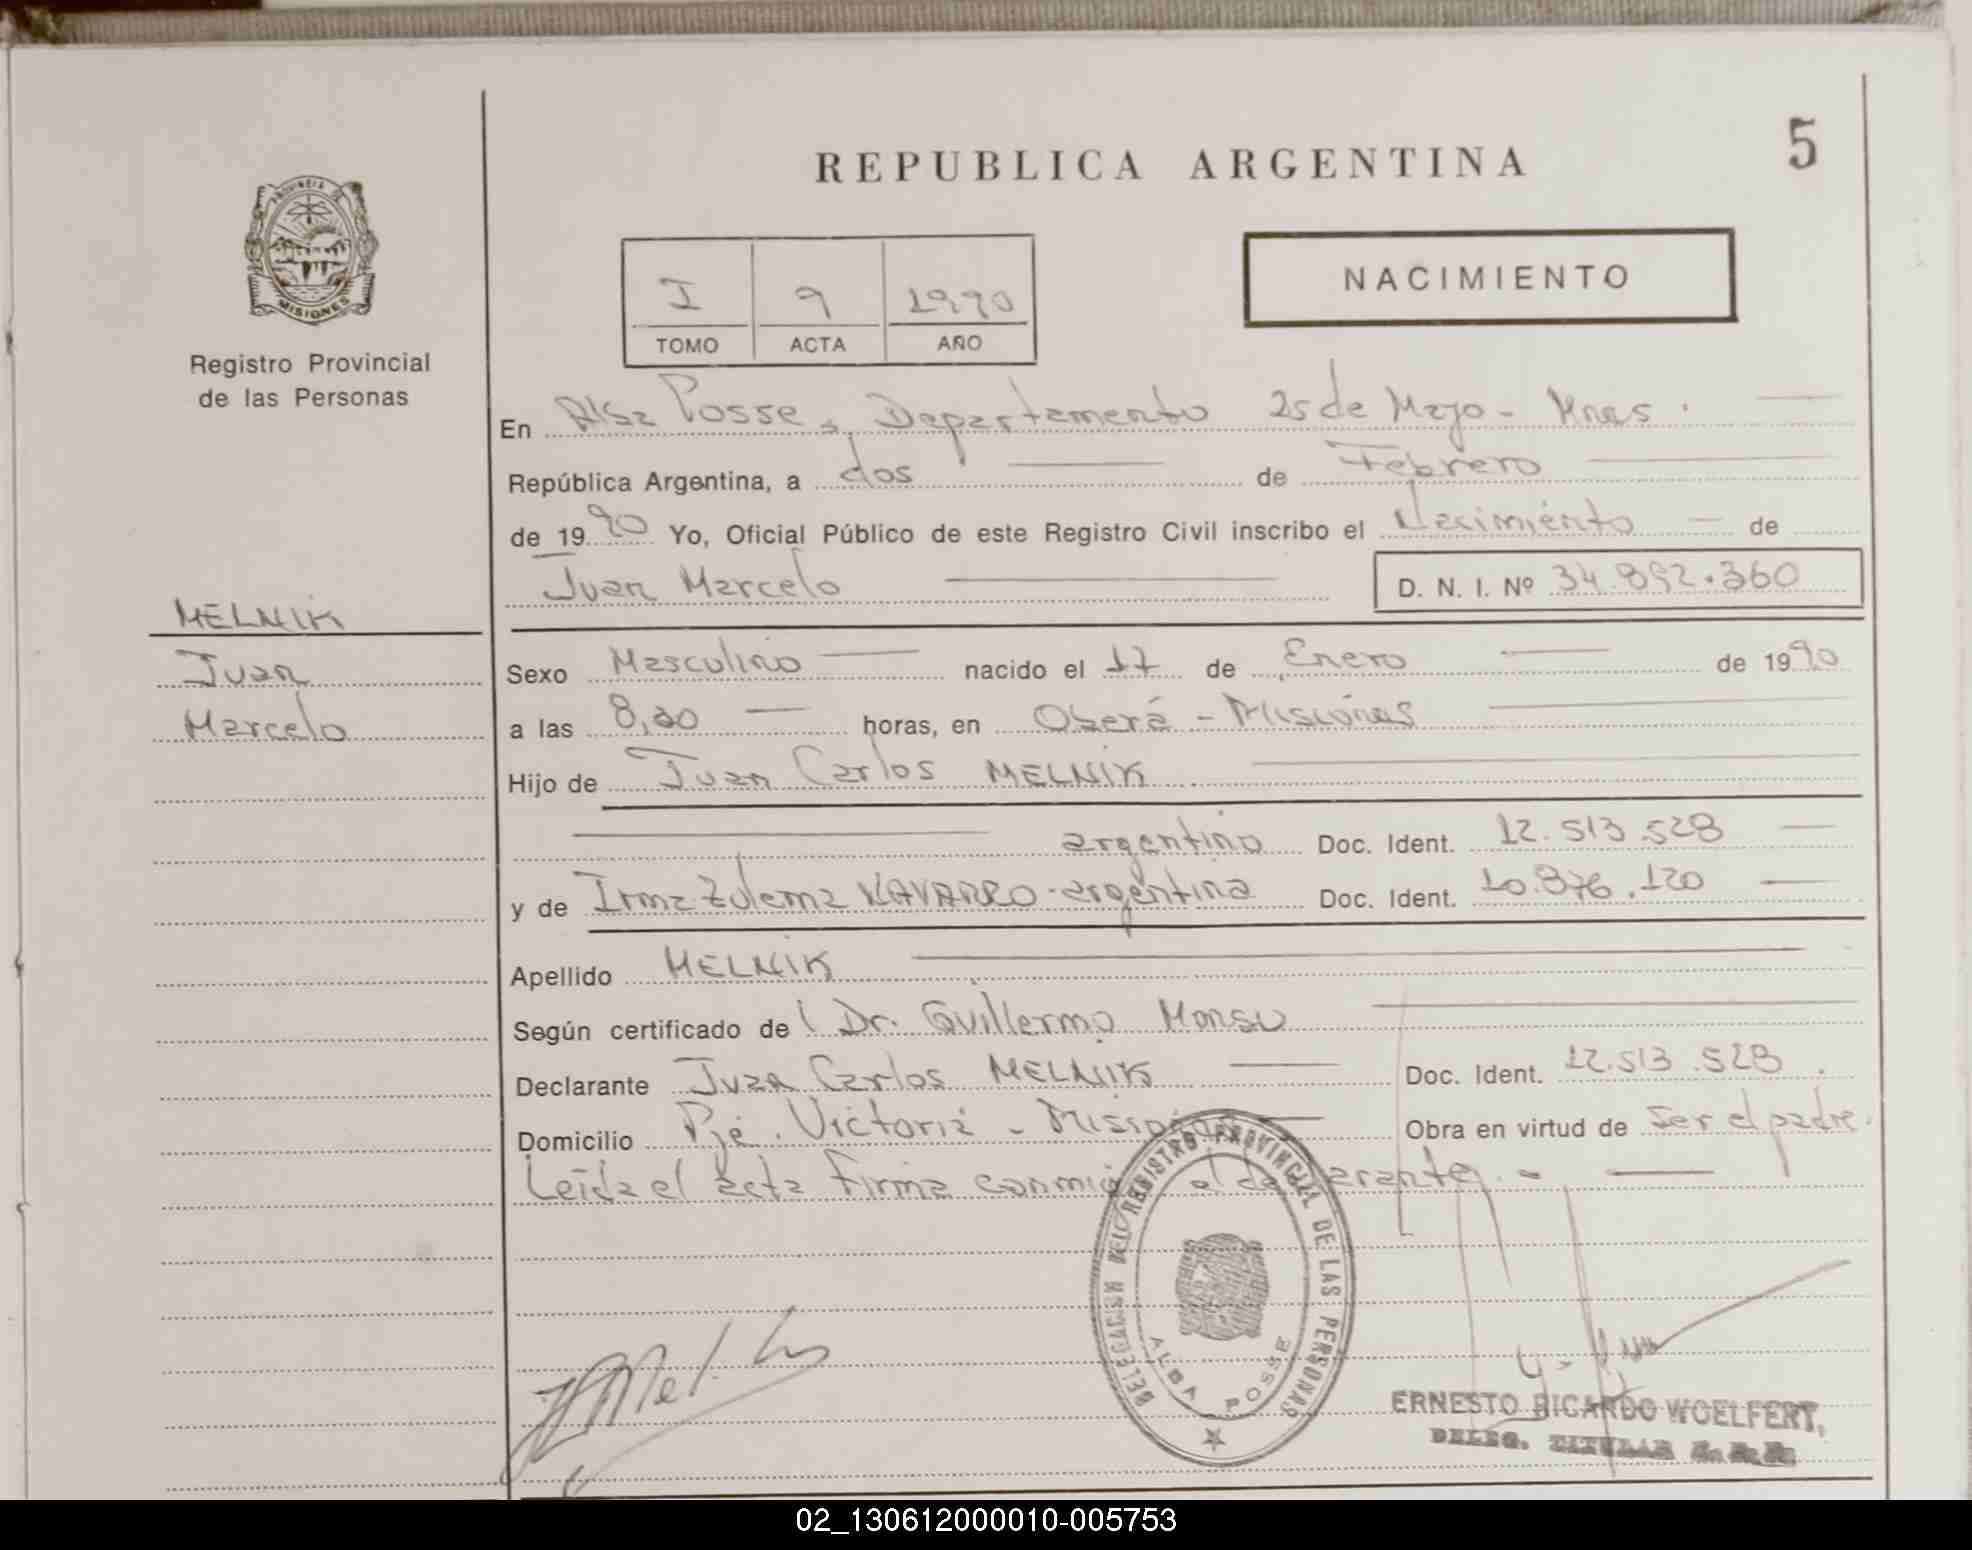 5
REPUBLICA ARGENTINA
PROVINCIA DE
MISIONES
Registro Provincial
de las Personas
NACIMIENTO
I 9 1990
TOMO ACTA AÑO
En Alba Posse, Departamento 25 de Mayo - Mnes.
República Argentina, a dos de Febrero
de 1990 Yo, Oficial Público de este Registro Civil inscribo el Nacimiento de
Juan Marcelo D. N. I. Nº 34.892.360
MELNIK
Juan
Marcelo
Sexo Masculino nacido el 17 de Enero de 1990
a las 8,30 horas, en Oberá - Misiones
Hijo de Juan Carlos MELNIK
argentino Doc. Ident. 12.513.528
y de Irma Zulema NAVARRO - argentina Doc. Ident. 10.876.120
Apellido MELNIK
Según certificado de Dr. Guillermo
Declarante Juan Carlos MELNIK Doc. Ident. 12.513.528
Domicilio Pje. Victoria - Misiones Obra en virtud de ser el padre.
Leída el acta firma conmigo el declarante. -
DELEGACION DEL REGISTRO PROVINCIAL DE LAS PERSONAS
ALBA POSSE
ERNESTO RICARDO WOELFERT,
DELEG. TITULAR
02_130612000010-005753